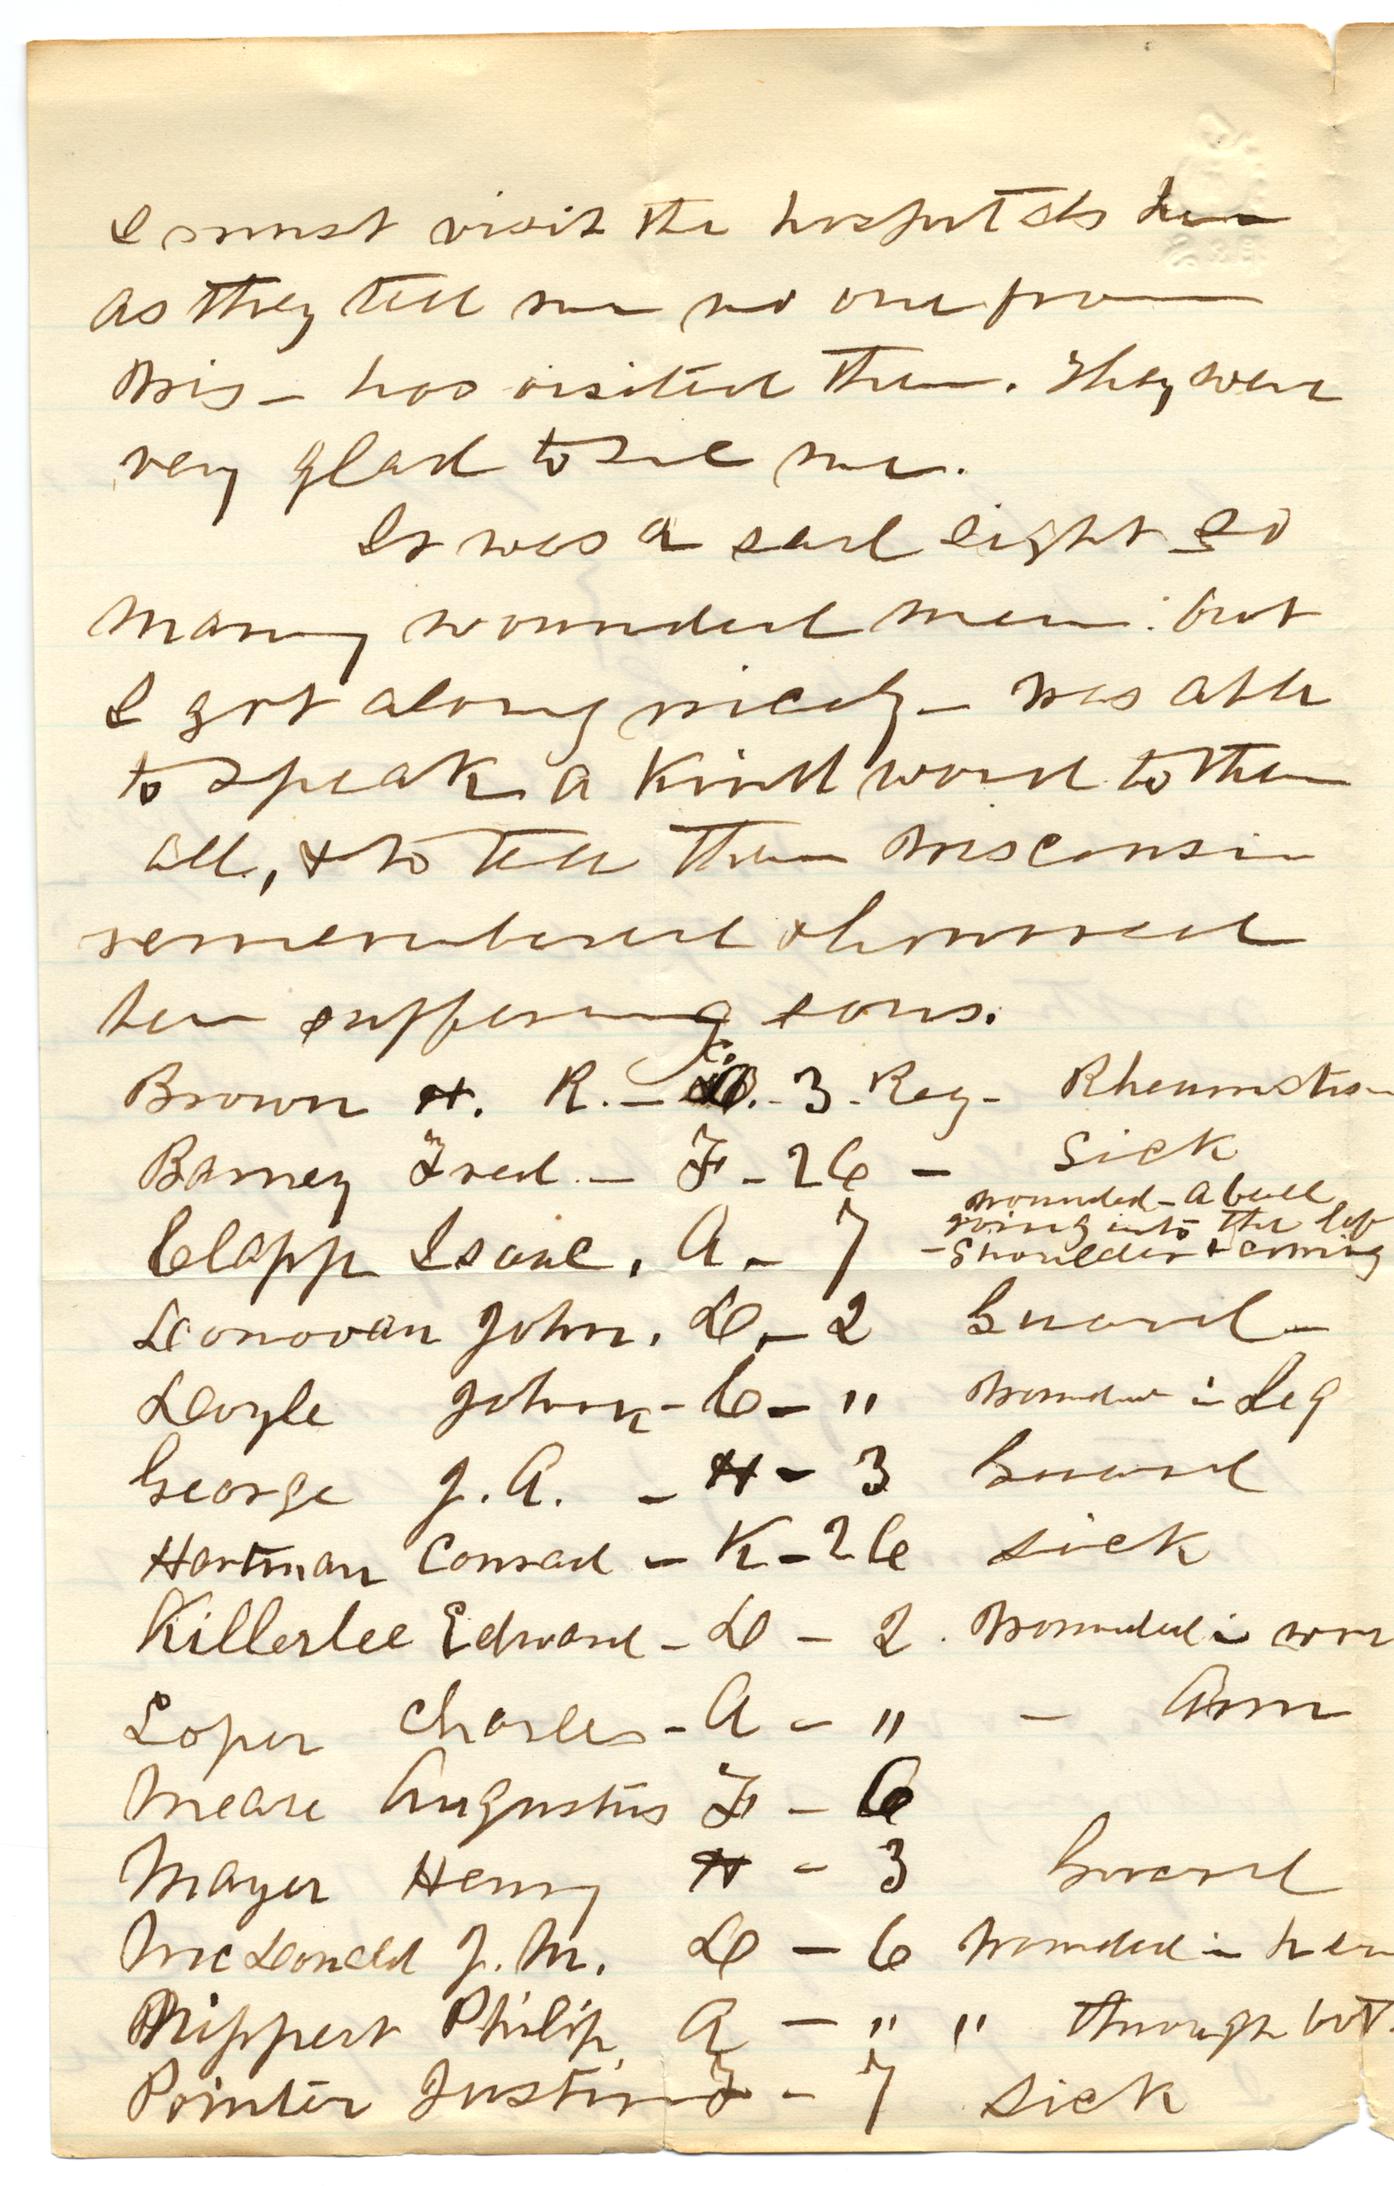 I must visit the hospitals here
as they tell me no one from
Wis - has visited them. They were
very glad to see me.
It was a sad sight so
many wounded men: but
I got along nicely - was able
to speak a kind word to them
all, & to tell them Wisconsin
remembered & honored
her suffering sons.
Brown H. R. - C. 3 - Reg - Rheumatism
Barney Fred - F - 26 - Sick
Clapp Isaac, A - 7 - wounded - a ball
going into the left
shoulder & coming
Donovan John, D - 2 Guard -
Doyle John - C - " Wounded in Leg
George J. A. - H - 3 Guard
Hartman Conrad - K - 26 sick
Killerlee Edward - D - 2. Wounded in
Loper Charles - A - " - Arm
Meare Augustus F - 6
Mayer Henry H - 3 Guard
McDonald J. M. D - 6 Wounded in
Philip A - " " through both
Pointer Justin F - 7 sick